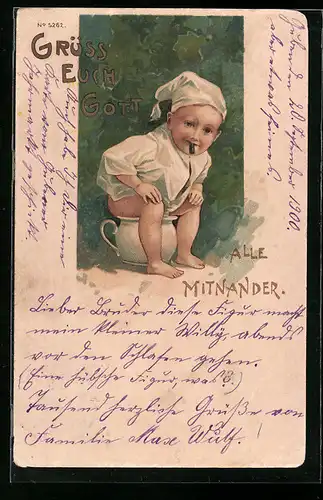 No 5262.
GRÜSS
EUCH
GOTT
ALLE
MITNANDER.
Guben den 20. September 1900.
aber etwas feines
Lieber Bruder diese Figur macht
mein kleiner Willy, abends
vor den Schlafen gehen.
(Eine hübsche Figur, was?.)
Tausend herzliche Grüße von
Familie Max Wulf.!